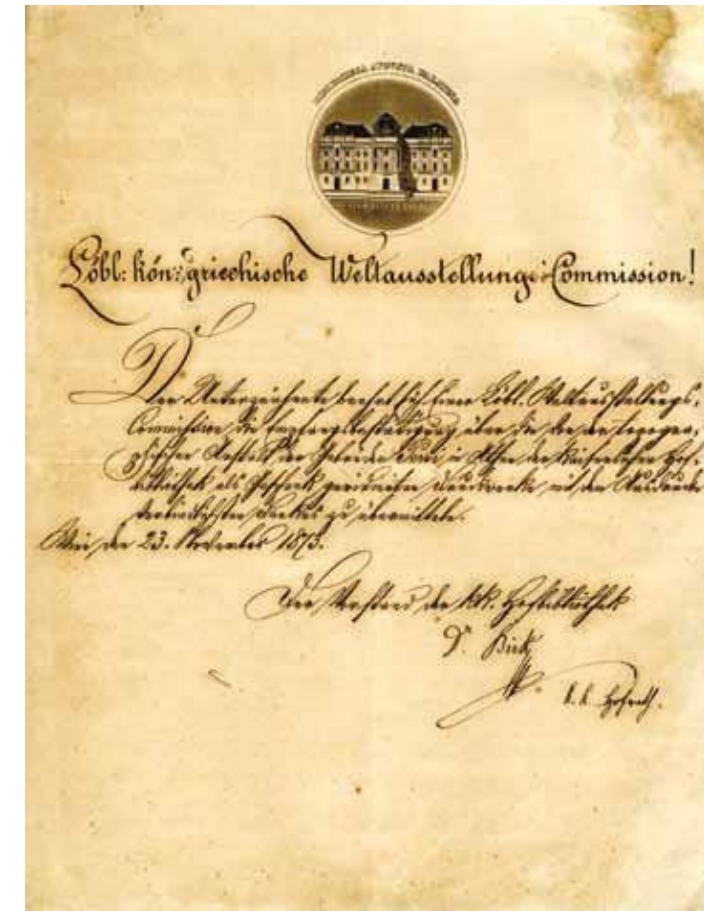 BIBLIOTHECA AUGUSTA PALATINA
Löbl: kön: griechische Weltausstellungs-Commission!
Der Unterzeichnete beehrt sich einer Löbl. Weltausstellungs-
Commission die Empfangsbestätigung über die von der typogra-
phischen Anstalt der Gebrüder in Athen der kaiserlichen Hof-
bibliothek als Geschenk gewidmeten Druckwerke mit dem Ausdrucke
verbindlichsten Dankes zu übermitteln.
Wien den 23. November 1873.
Der Vorstand der k.k. Hofbibliothek
Dr. Birk
k. k. Hofrath.